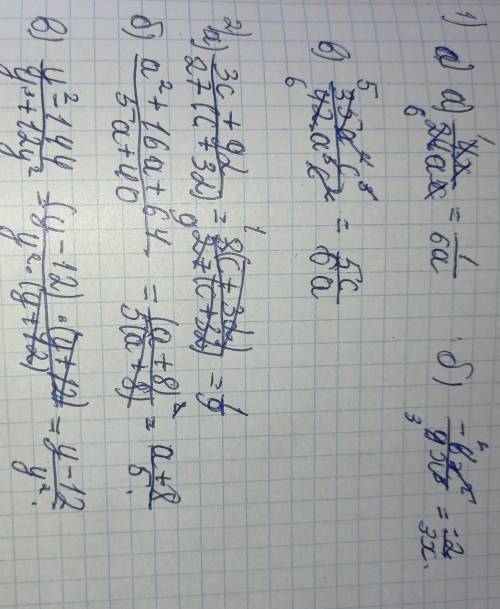 1)
а) 4x/24ax = 1/6a
б) -6x²/9x³ = -2/3x.
в) 35a²c³/42a³c² = 5c/6a
2)
а) 3c+9d/27(c+3d) = 3(c+3d)/27(c+3d) = 1/9
б) a²+16a+64/5a+40 = (a+8)²/5(a+8) = a+8/5.
в) y²-144/y³+12y² = (y-12)·(y+12)/y²·(y+12) = y-12/y².